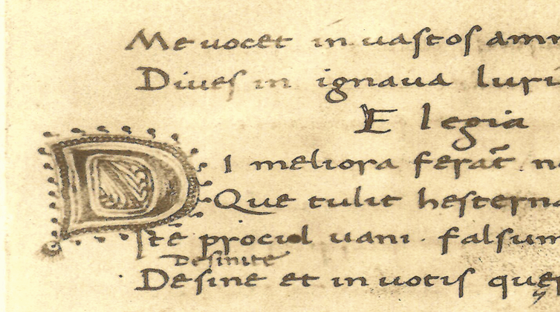 Me uocet in uastos amn
Diues in ignaua luri
Elegia
DI meliora ferāt n
Que tulit hestern
Ite procul uani falsum
Desinite
Desine et in uotis quę